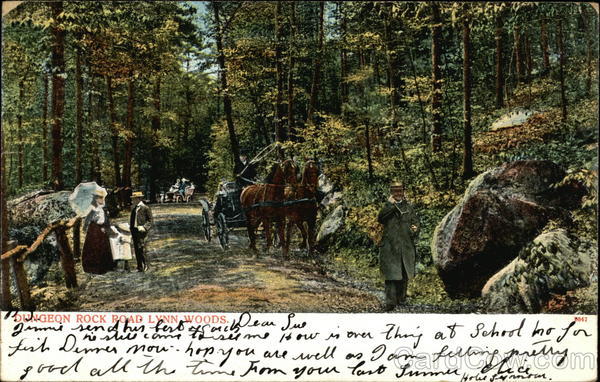 DUNGEON ROCK ROAD LYNN WOODS.
Dear Sue
Jimmie send his best regards
he still come to see me How is over thing at School no for
fish Dinner now. hop you are well as I am felling pretty
good all the time from your last Summer
CardCow.com